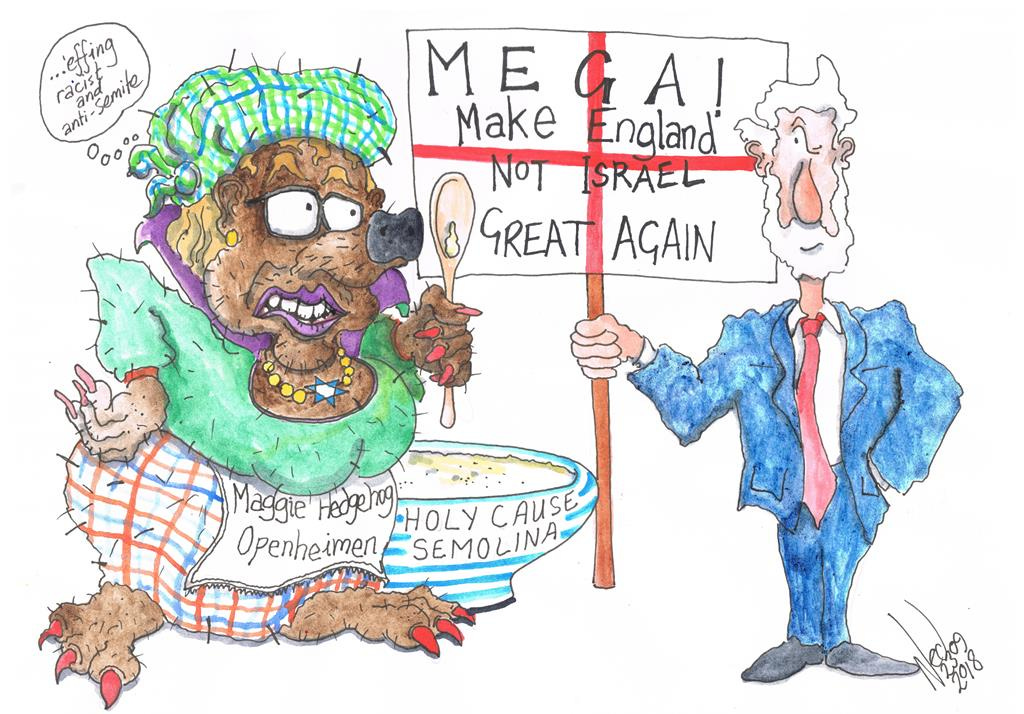 ...effing
racist
and
anti-semite
MEGA!
Make England
NOT ISRAEL
GREAT AGAIN
Maggie Hedgehog
Openheimen
HOLY CAUSE
SEMOLINA
2018